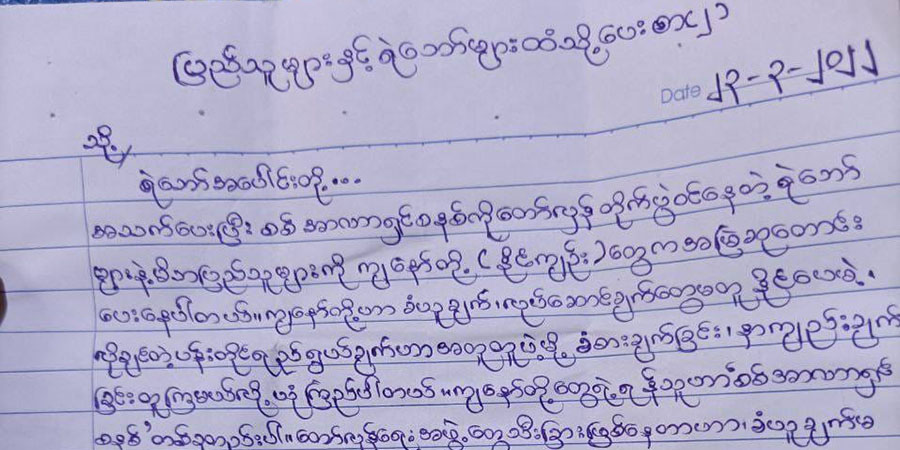 ပြည်သူများနှင့် ရဲဘော်များထံသို့ပေးစာ(၂)
Date ၂၃-၃-၂၀၂၂
သို့
ရဲဘော်အပေါင်းတို့...
အသက်ပေးပြီး စစ် အာဏာရှင်စနစ်ကိုတော်လှန် တိုက်ပွဲဝင်နေတဲ့ ရဲဘော်
များနဲ့မိဘပြည်သူများကို ကျွနော်တို့ (နိုင်ကျဉ်း)တွေက အမြဲဆုတောင်း
ပေးနေပါတယ်။ ကျွနော်တို့ဟာ ခံယူချက်၊လုပ်ဆောင်ချက်တွေမတူ နိုင်ပေမဲ့၊
လိုချင်တဲ့ပန်းတိုင်ရည်ရွယ်ချက်ဟာအတူတူမို့မို့ ခံစားချက်ခြင်း၊ နာကျည်းချက်
ခြင်းတူကြမယ်လို့ ယုံကြည်ပါတယ်။ ကျွနော်တို့တွေရဲ့ ရန်သူဟာ'စစ်အာဏာရှင်
စနစ်'တစ်ခုတည်းပါ။ တော်လှန်ရေးအဖွဲ့တွေသီးခြားဖြစ်နေတာဟာ၊ ခံယူချက်မ